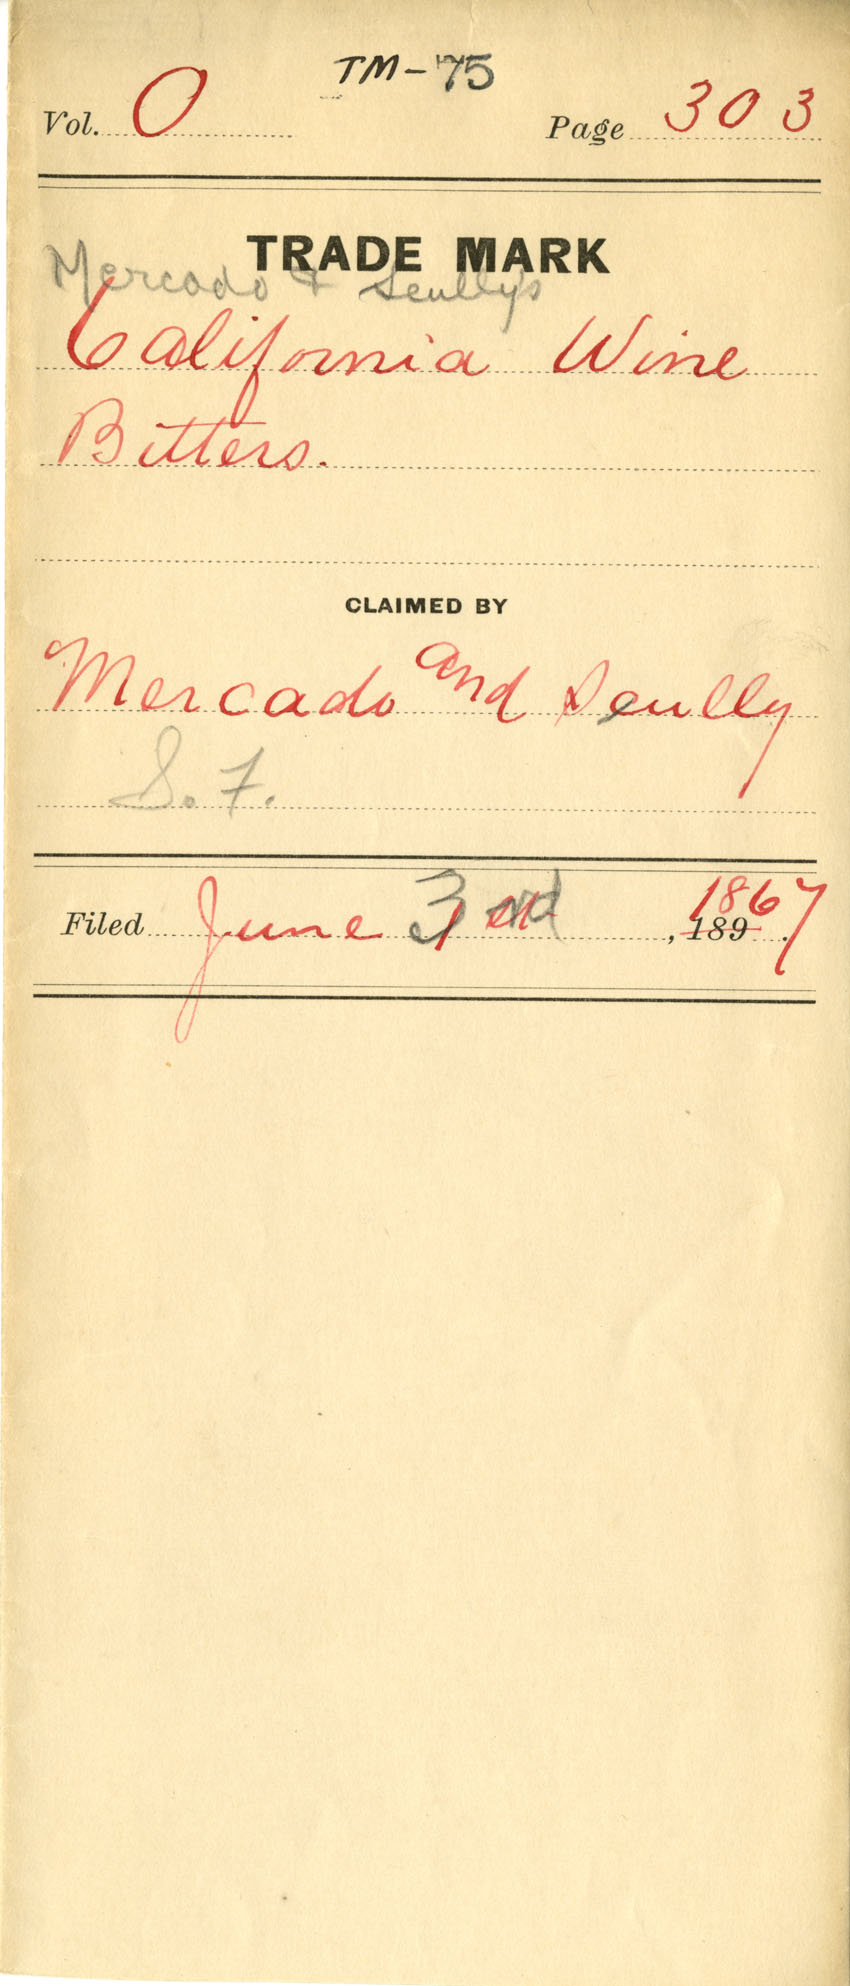 TM-75
Vol. O Page 303
TRADE MARK
Mercado & Scully's
California Wine
Bitters.
CLAIMED BY
Mercado and Scully
S. F.
Filed June 3rd 1867
, 189 .